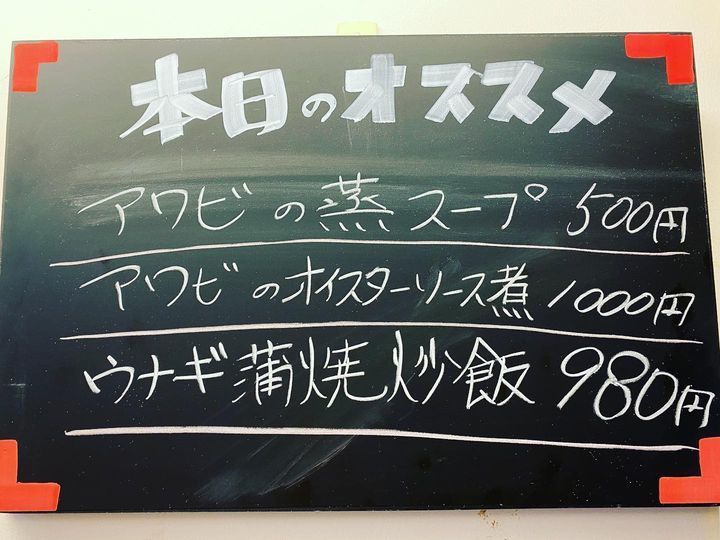 本日のオススメ
アワビの蒸スープ 500円
アワビのオイスターソース煮 1000円
ウナギ蒲焼炒飯 980円